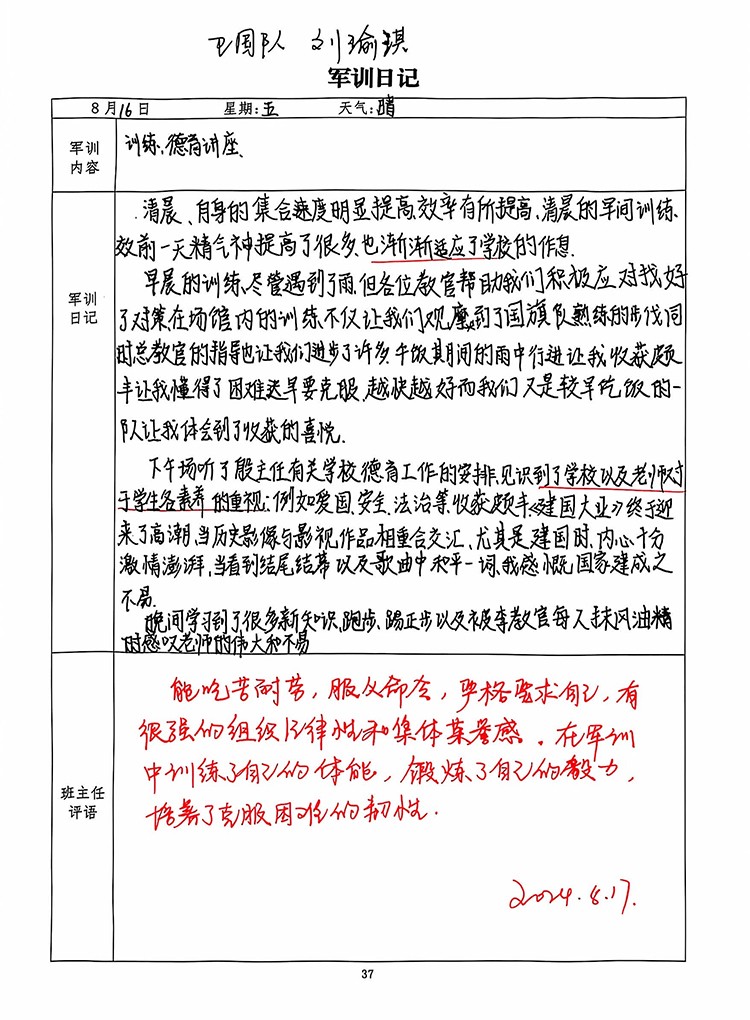 卫国队 刘瑜琪
军训日记
8月16日 星期:五 天气:晴
军训
内容
训练、德育讲座、
军训
日记
清晨、自身的集合速度明显提高,效率有所提高,清晨的早间训练、
效前一天精气神提高了很多,也渐渐适应了学校的作息.
早晨的训练,尽管遇到了雨,但各位教官帮助我们积极应对找好
了对策在场馆内的训练不仅让我们观摩到了国旗队熟练的步伐,同
时总教官的指导也让我们进步了许多.午饭其期间的雨中行进让我收获颇
丰让我懂得了困难迟早要克服,越快越好而我们又是较早吃饭的一
队让我体会到了收获的喜悦.
下午场听了殷主任有关学校德育工作的安排,见识到了学校以及老师对
于学生各素养的重视;例如爱国、安全、法治等,收获颇丰,《建国大业》终于迎
来了高潮,当历史影像与影视作品相重合交汇、尤其是建国时,内心十分
激情澎湃,当看到结尾结幕以及歌曲中和平一词,我感慨国家建成之
不易.
晚间学习到了很多新知识,跑步、踢正步以及被李教官每人抹风油精
时感叹老师的伟大和不易
班主任
评语
能吃苦耐劳,服从命令,严格要求自己,有
很强的组织纪律性和集体荣誉感。在军训
中训练了自己的体能,锻炼了自己的毅力,
培养了克服困难的韧性.
2024.8.17.
37